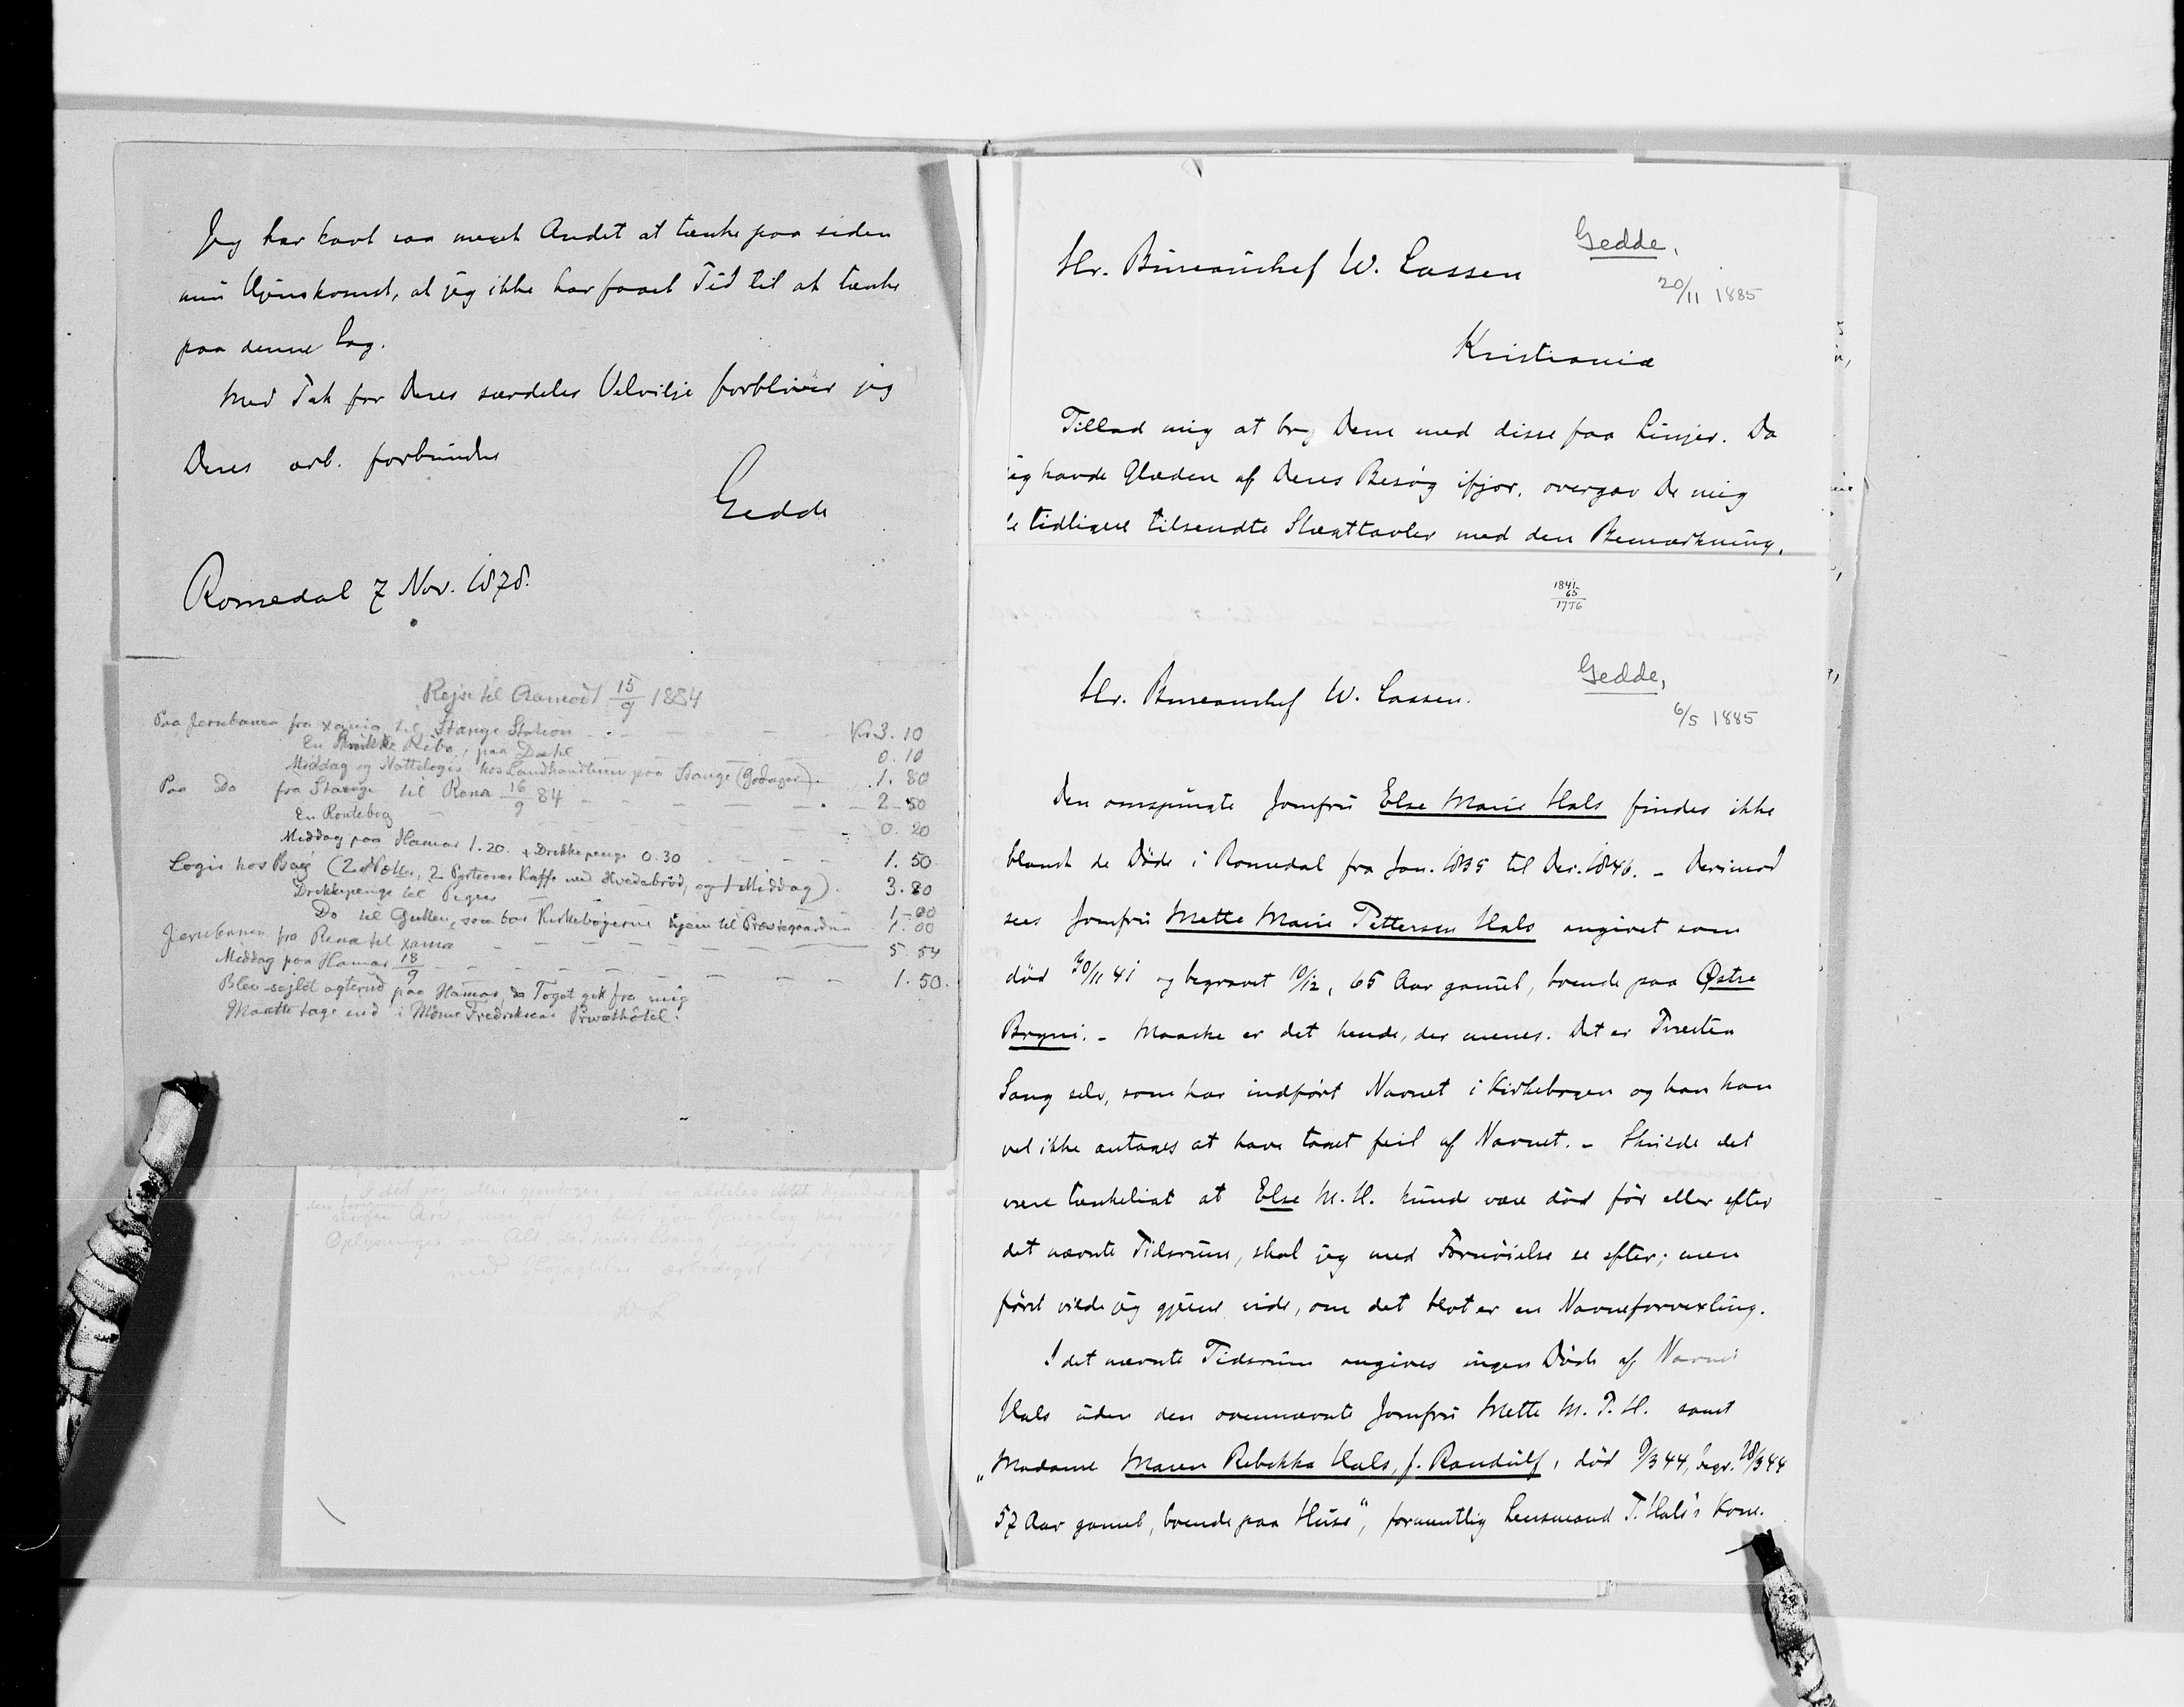 Jeg har havt saa meget Andet at tænke paa siden
min Hjemkomst, at jeg ikke har faaet Tid til at tænke
paa denne Sag.
Med Tak for Deres særdeles Velvilje forbliver jeg
Deres ærb. forbundne
Gedde
Romedal 7 Nov. 1878.
Rejse til Aamodt 15/9 1884
Paa Jernbanen fra Xania til Stange Station - - - Kr. 3.10
En Ribs, paa Do til - - - 0.10
Middag og Nattelogis hos Landhandleren paa Stange (Godager) - 1.80
Paa Do fra Stange til Rena 16/9 84 - - - - 2.50
En Routebog - - - - 0.20
Middag paa Hamar 1.20. + Drikkepenge 0.30 - - - 1.50
Logis hos Bag (2 Nætter, 2 Portioner Kaffe med Hvedebrød, og 1 Middag). 3.80
Drikkepenge til Pigen - - - 1.00
Do til Gutten, som bar Kirkebøgerne hjem til Præstegaarden 1.00
Jernbanen fra Rena til Xania - - - - 5.54
Middag paa Hamar 18/9 - - - - 1.50.
Blev sejlet agterud paa Hamar, da Toget gik fra mig
Maatte tage ind i Mdme Fredriksens Privathôtel.
I det jeg atter gjentager, at jeg aldeles ikke
Oplysninger om Alt,
med Højagtelse ærbødigst
Hr. Bureauchef W. Lassen
Gedde,
20/11 1885
Kristiania
Tillad mig at Dem med disse faa Linjer. Da
jeg havde Glæden af Deres Besøg ifjor, overgav De mig
de tidligere tilsendte Slægttavler med den Bemærkning,
1841
65
1776
Hr. Bureauchef W. Lassen.
Gedde,
6/5 1885
Den omspurgte Jomfru Else Marie Hals findes ikke
blandt de Døde i Romedal fra Jan. 1835 til Dec. 1846. - Derimod
sees Jomfru Mette Marie Pettersen Hals angivet som
død 30/11 41 og begravet 10/12, 65 Aar gammel, boende paa Østre
Bryni. - Maaske er det hende, der menes. Det er Provsten
Lang selv, som har indført Navnet i Kirkebogen og han kan
vel ikke antages at have taget feil af Navnet. - Skulde det
være tænkeligt at Else M. H. kunde være død før eller efter
det nævnte Tidsrum, skal jeg med Fornøielse se efter; men
først vilde jeg gjerne vide, om det blot er en Navneforvexling.
I det nævnte Tidsrum angives ingen Døde af Navnet
Hals uden den ovennævnte Jomfru Mette M. P. H. samt
"Madame Maren Rebekka Hals, f. Randulf, død 9/3 44, begr. 28/3 44
57 Aar gammel, boende paa Huse", formentlig Lensmand T. Hals's Kone.